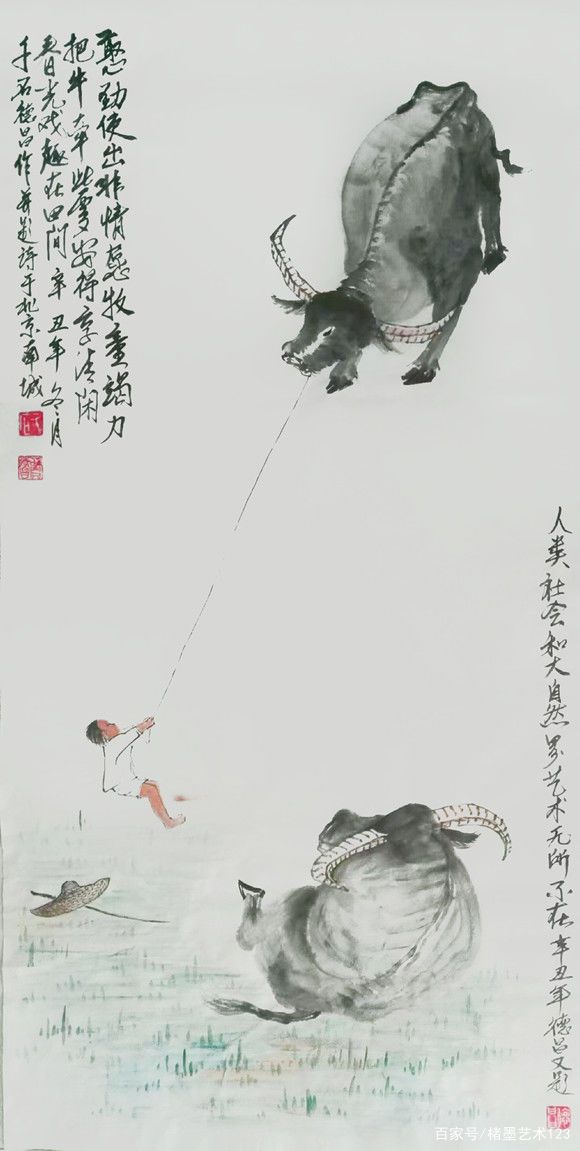 憨劲使出非情愿牧童竭力
把牛牵此處安得享清闲
春光戏趣在田间辛丑年冬月
千石德昌作并题诗于北京南城
人类社会和大自然界艺术无所不在辛丑年德昌又题
百家号/楮墨艺术123